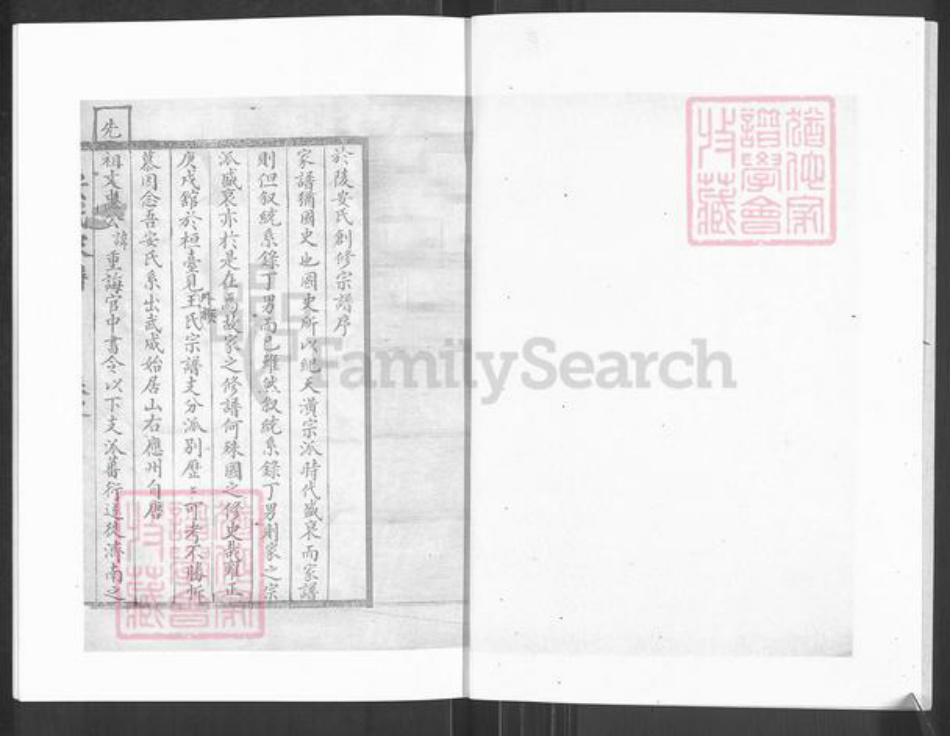 於陵安氏創修宗譜序
家譜猶國史也國史所以紀天潢宗派時代盛衰而家譜
則但叙統系錄丁男而已雖然叙統系錄丁男則家之宗
派盛衰亦於是在焉故家之修譜何殊國之修史哉雍正
庚戌館於桓臺見王氏宗譜支分派別歷〻可考不勝忻
外
慕因念吾安氏系出武威始居山右應州自唐
先
祖 公諱重誨官中書令以下支派蕃衍遷徙濟南之
猶他家
譜學會
收藏
猶他家
譜學會
收藏
FamilySearch